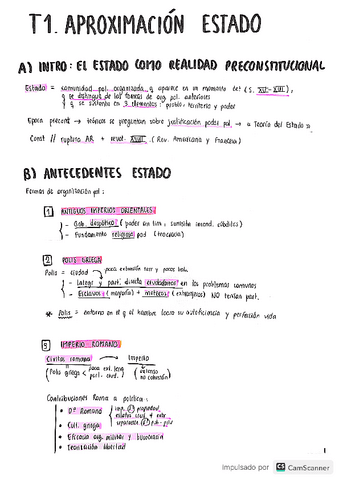 T1. APROXIMACIÓN ESTADO
A) INTRO: EL ESTADO COMO REALIDAD PRECONSTITUCIONAL
Estado = comunidad pol. organizada q aparece en un momento det (S. XVI-XVII),
q se distingue de las formas de org pol. anteriores
q se sustenta en 3 elementos: pueblo, territorio y poder
Época present → teóricos se preguntan sobre justificación poder pol. → « Teoría del Estado »
Const // ruptura AR + revol. XVIII. (Rev. Americana y Francesa)
B) ANTECEDENTES ESTADO
Formas de organización pol:
1 ANTIGUOS IMPERIOS ORIENTALES
- Gob. despótico (poder sin lím, sumisión incond. súbditos)
- Fundamento religioso pod (teocracia)
2 POLIS GRIEGA
Polis = ciudad → poca extensión terr y pocos hab.
- Integr y part. directa ciudadanos en los problemas comunes
- Esclavos (mayoría) + metecos (extranjeros) NO tenían part.
* Polis = entorno en el q el hombre logra su autosuficiencia y perfección vida
3 IMPERIO ROMANO
Civitas romana → Imperio
(Polis griega < poca ext. terr part. ciud.) (extenso no cohesión)
Contribuciones Roma a política:
• Dº Romano
• Cult. griega
• Eficacia org. militar y burocracia
• Teorización libertad
1
Impulsado por CS CamScanner